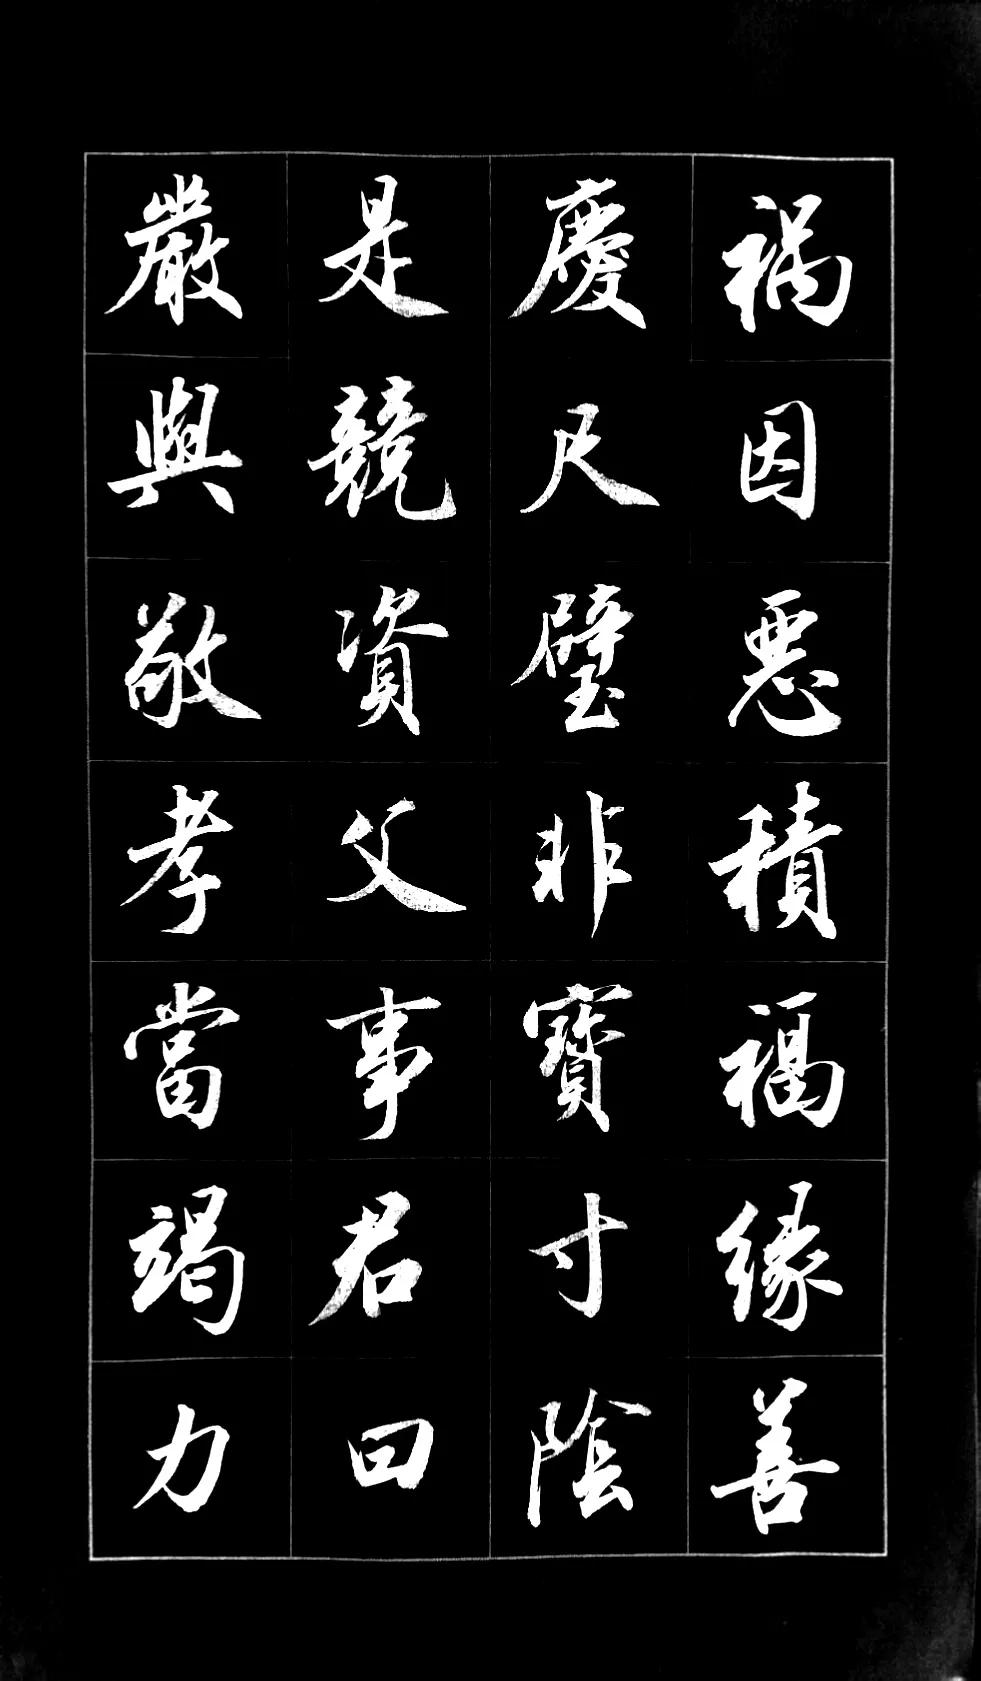 禍因惡積福緣善
慶尺璧非寶寸陰
是競資父事君曰
嚴與敬孝當竭力